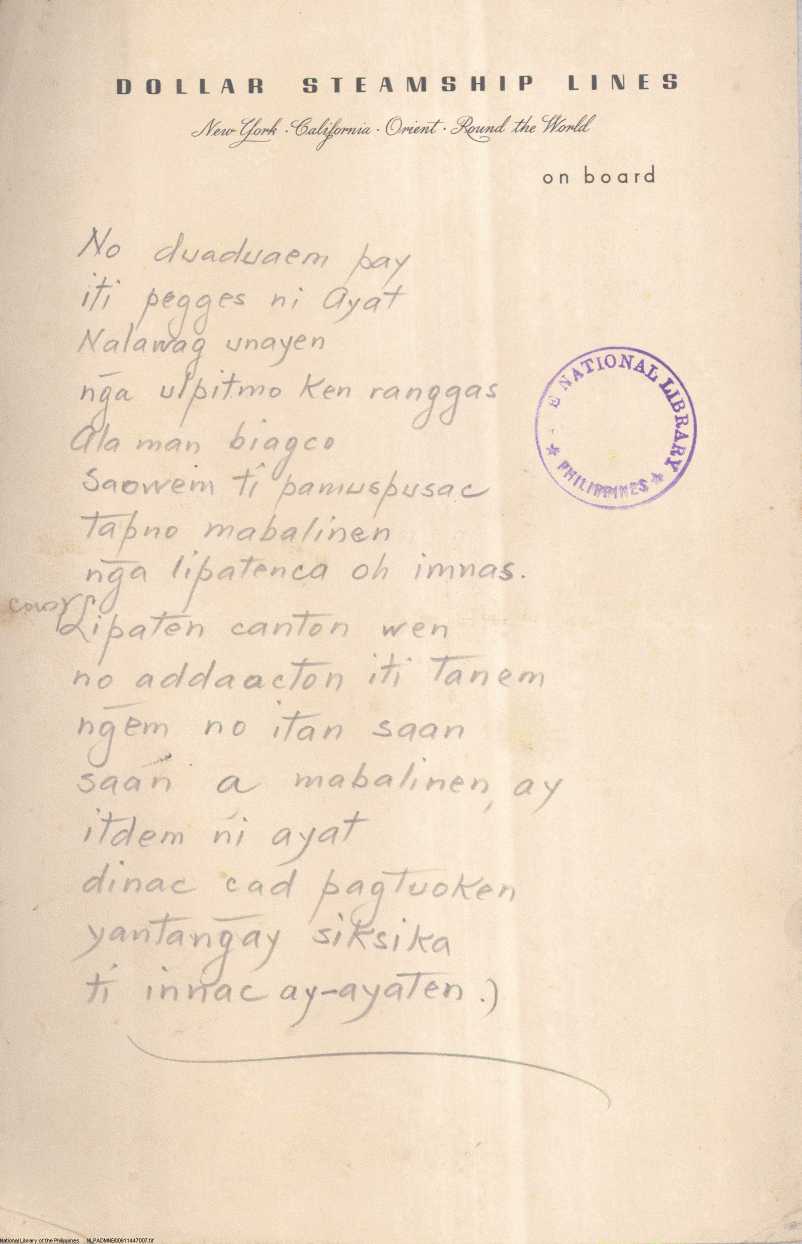 DOLLAR STEAMSHIP LINES
New York · California · Orient · Round the World
on board
No duaduaem pay
iti pegges ni Ayat
Nalawag unayen
nḡa ulpitmo ken ranggas
Ala man biagco
Saowem ti pamuspusac
tapno mabalinen
nḡa lipatenca oh imnas.
Lipaten canton wen
no addaacton iti tanem
nḡem no itan saan
saan a mabalinen, ay
itdem ni ayat
dinac cad pagtuoken
yantanḡay siksika
ti innac ay-ayaten.)
E NATIONAL LIBRARY
PHILIPPINES
National Library of the Philippines